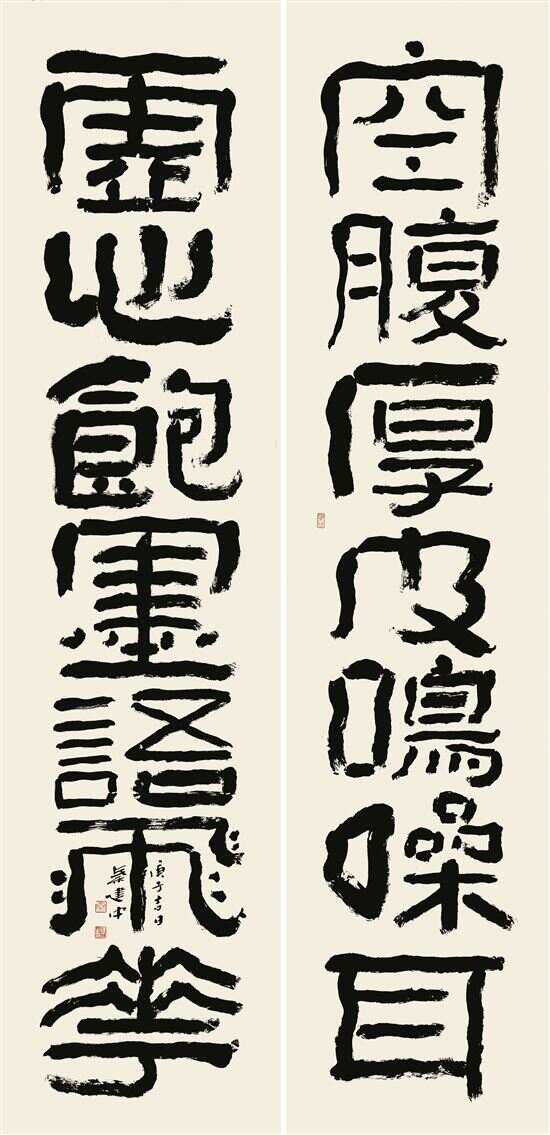 空腹厚皮鳴噪耳
虛心飽墨語飛花
庚子吉日
建中